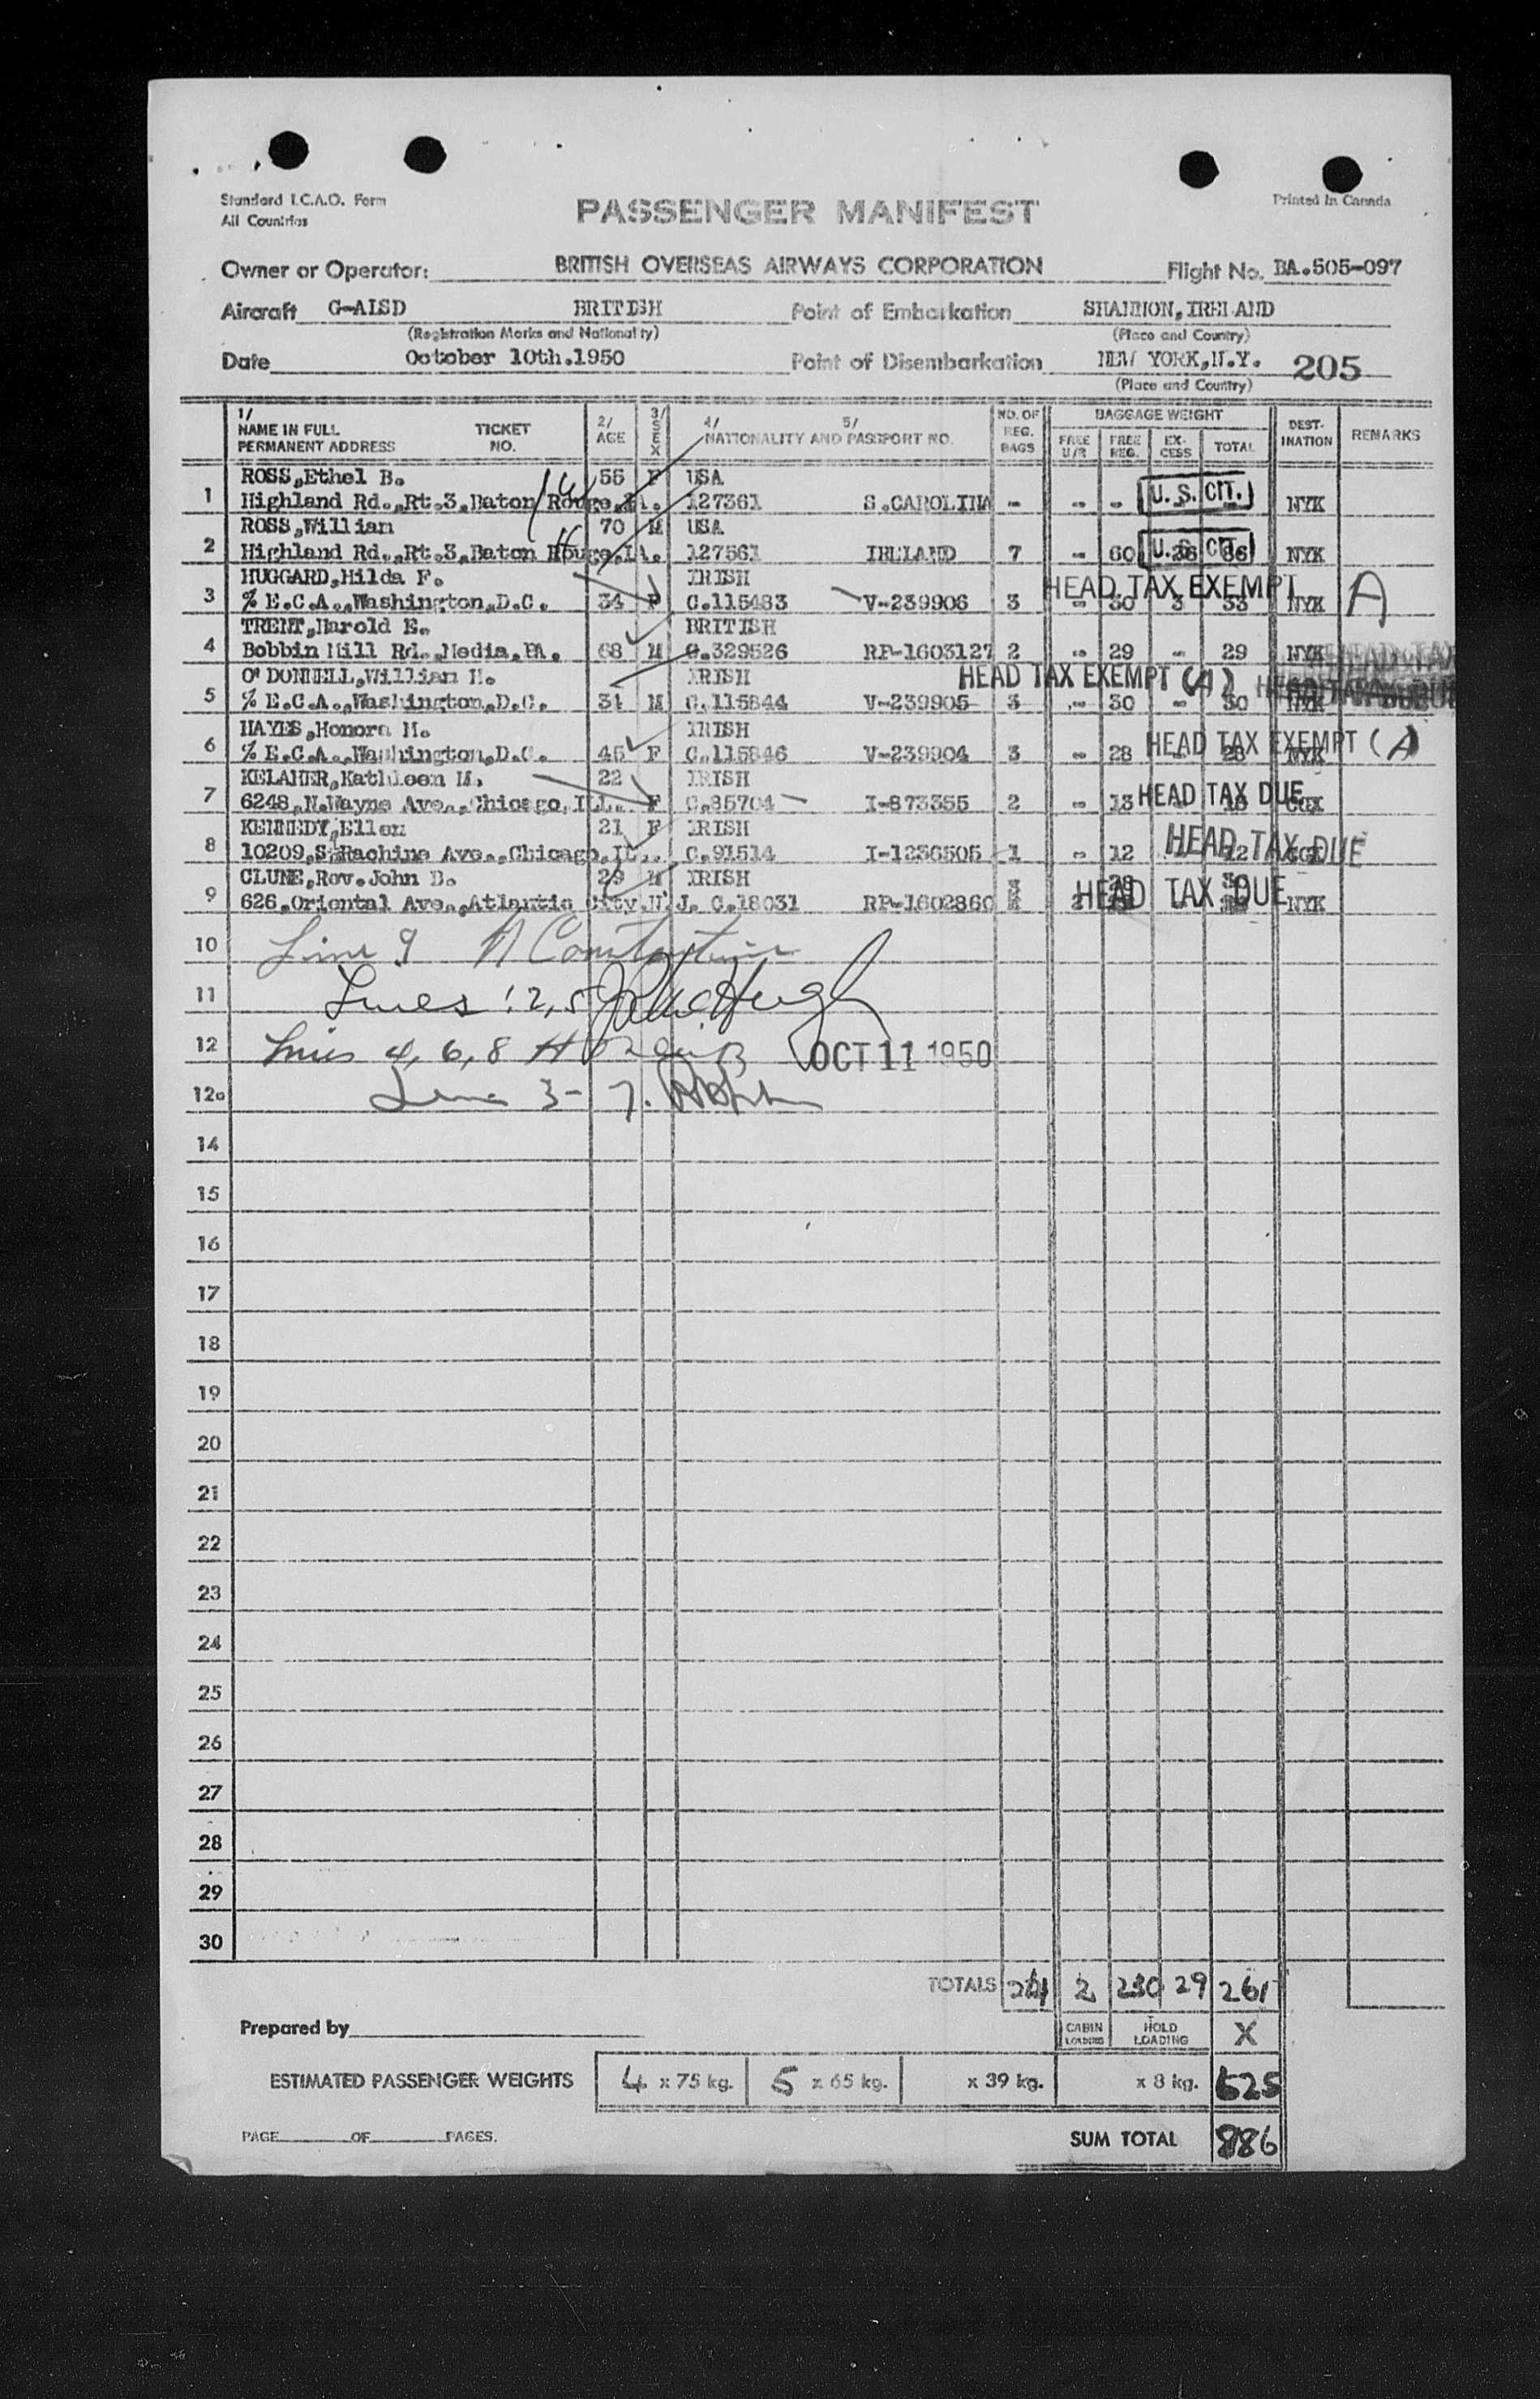 Standard I.C.A.O. Form
All Countries
PASSENGER MANIFEST
Printed in Canada
Owner or Operator: BRITISH OVERSEAS AIRWAYS CORPORATION Flight No. BA.505-097
Aircraft G-ALSD BRITISH Point of Embarkation SHANNON, IRELAND
(Registration Marks and Nationality) (Place and Country)
Date October 10th.1950 Point of Disembarkation NEW YORK,N.Y. 205
(Place and Country)
1/ NAME IN FULL PERMANENT ADDRESS TICKET NO. 2/ AGE 3/ SEX 4/ 5/ NATIONALITY AND PASSPORT NO. NO. OF REG. BAGS BAGGAGE WEIGHT FREE U/R FREE REG. EX-CESS TOTAL DEST-INATION REMARKS
ROSS,Ethel B. 55 F USA
1 Highland Rd.,Rt.3,Baton Rouge,LA. 127361 S.CAROLINA - - - U.S. CIT. NYK
ROSS,William 70 M USA
2 Highland Rd.,Rt.3,Baton Rouge,LA. 127561 IRELAND 7 - 60 26 86 U.S. CIT. NYK
HUGGARD,Hilda F. IRISH
3 % E.C.A.,Washington,D.C. 34 F C.115483 V-239906 3 - 30 3 33 HEAD TAX EXEMPT NYK A
TRENT,Harold E. BRITISH
4 Bobbin Mill Rd.,Media,PA. 68 M C.329526 RP-1603127 2 - 29 - 29 NYK HEAD TAX
O'DONNELL,William H. IRISH HEAD TAX EXEMPT (A)
5 % E.C.A.,Washington,D.C. 31 M C.115844 V-239905 3 - 30 - 30 NYK
HAYES,Honora M. IRISH
6 % E.C.A.,Washington,D.C. 45 F C.115846 V-239904 3 - 28 - 28 HEAD TAX EXEMPT (A) NYK
KELAHER,Kathleen M. 22 IRISH
7 6248,N.Wayne Ave.,Chicago,ILL. F C.85704 I-873355 2 - 13 HEAD TAX DUE
KENNEDY,Ellen 21 F IRISH
8 10209,S.Rachine Ave.,Chicago,IL.. C.91514 I-1236505 1 - 12 12 HEAD TAX DUE
CLUNE,Rev.John B. 29 M IRISH
9 626,Oriental Ave.,Atlantic City,N.J. C.18031 RP-1602860 HEAD TAX DUE NYK
10 Line 9
11 Lines 1 2, 5
12 Lines 4, 6, 8 OCT 11 1950
12a Line 3- 7.
14
15
16
17
18
19
20
21
22
23
24
25
26
27
28
29
30
TOTALS 24 2 230 29 261
Prepared by CABIN LOADING HOLD LOADING X
ESTIMATED PASSENGER WEIGHTS 4 x 75 kg. 5 x 65 kg. x 39 kg. x 8 kg. 625
PAGE OF PAGES. SUM TOTAL 886